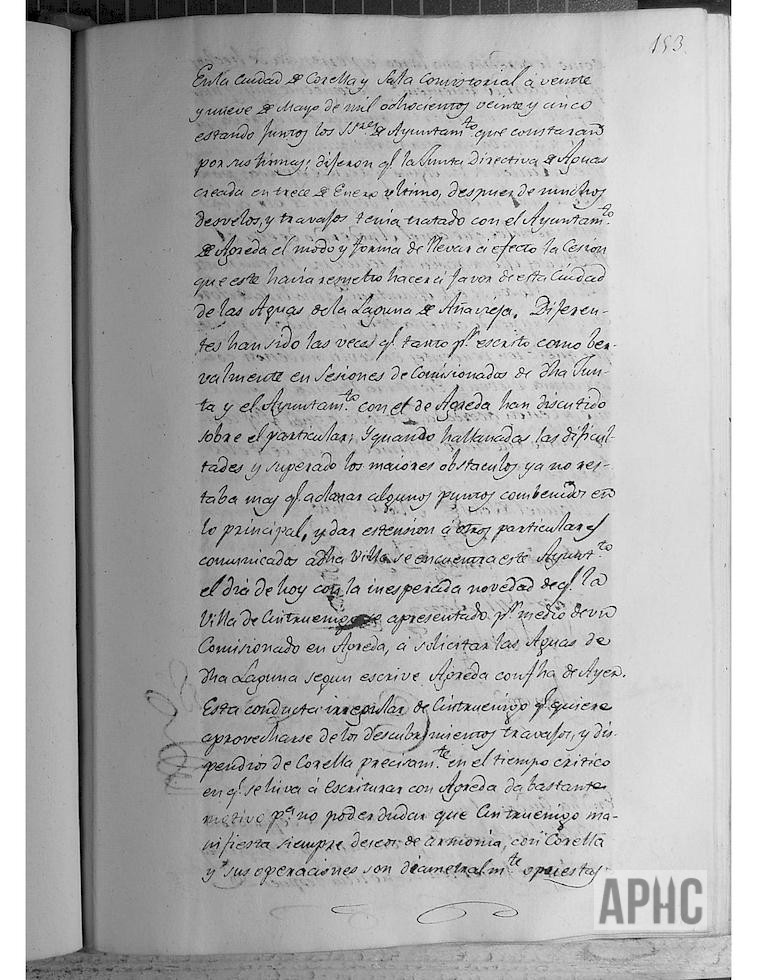 153.
En la Ciudad de Corella y Sala Consistorial á veinte
y nueve de Mayo de mil ochocientos veinte y cinco
estando Juntos los SS.res de Ayuntam.to que constaran
por sus firmas; dijeron q.l la Junta Directiva de Aguas
creada en trece de Enero ultimo, despues de muchos
desvelos, y travajos tenia tratado con el Ayuntam.to
de Agreda el modo y forma de llevar á efecto la Cesion
que este havia resuelto hacer á favor de esta Ciudad
de las Aguas de la Laguna de Añavieja. Diferen-
tes han sido las veces q.l tanto p.r escrito como ber-
valmente en Sesiones de Comisionados de dha Jun-
ta y el Ayuntam.to con el de Agreda han discutido
sobre el particular; y quando hallanadas las dificul-
tades y superado los maiores obstaculos ya no res-
taba mas q.l aclarar algunos puntos combenidos en
lo principal, y dar estension á otros particulares
comunicados a dha Villa se encuentra este Ayunt.to
el dia de hoy con la inesperada novedad de q.l la
Villa de Cintruenigo se apresentado p.r medio de un
Comisionado en Agreda, a solicitar las Aguas de
dha Laguna segun escrive Agreda con fha de Ayer.
Esta conducta irregular de Cintruenigo q.l quiere
aprovecharse de los descubrimientos travajos, y dis-
pendios de Corella precisam.te en el tiempo critico
en q.l se hiva á Escriturar con Agreda da bastante
motivo p.a no poder dudar que Cintruenigo ma-
nifiesta siempre deseos de armonia, con Corella
y sus operaciones son diametralm.te opuestas
APHC